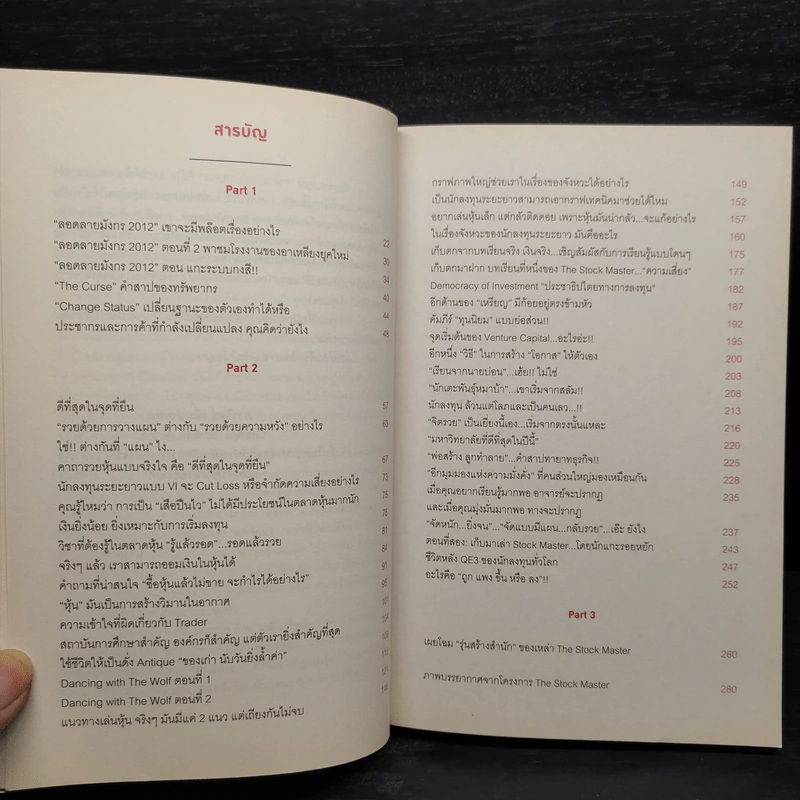 สารบัญ
Part 1
"ลอดลายมังกร 2012" เขาจะมีพล็อตเรื่องอย่างไร 22
"ลอดลายมังกร 2012" ตอนที่ 2 พาชมโรงงานของอาเหลียงยุคใหม่ 30
"ลอดลายมังกร 2012" ตอน แกะระบบกงสี!! 34
"The Curse" คำสาปของทรัพยากร 40
"Change Status" เปลี่ยนฐานะของตัวเองทำได้หรือ 44
ประชากรและการค้าที่กำลังเปลี่ยนแปลง คุณคิดว่ายังไง 48
Part 2
ดีที่สุดในจุดที่ยืน 57
"รวยด้วยการวางแผน" ต่างกับ "รวยด้วยความหวัง" อย่างไร 63
ใช่!! ต่างกันที่ "แผน" ไง...
คาถารวยหุ้นแบบจริงใจ คือ "ดีที่สุดในจุดที่ยืน" 67
นักลงทุนระยะยาวแบบ VI จะ Cut Loss หรือจำกัดความเสี่ยงอย่างไร 73
คุณรู้ไหมว่า การเป็น "เสือปืนไว" ไม่ได้มีประโยชน์ในตลาดหุ้นมากนัก 75
เงินยิ่งน้อย ยิ่งเหมาะกับการเริ่มลงทุน 78
วิชาที่ต้องรู้ในตลาดหุ้น "รู้แล้วรอด"...รอดแล้วรวย 81
จริงๆ แล้ว เราสามารถออมเงินในหุ้นได้ 84
คำถามที่น่าสนใจ "ซื้อหุ้นแล้วไม่ขาย จะกำไรได้อย่างไร" 91
"หุ้น" มันเป็นการสร้างวิมานในอากาศ 96
ความเข้าใจที่ผิดเกี่ยวกับ Trader 101
สถาบันการศึกษาสำคัญ องค์กรก็สำคัญ แต่ตัวเรายิ่งสำคัญที่สุด 104
ใช้ชีวิตให้เป็นดั่ง Antique "ของเก่า นับวันยิ่งล้ำค่า" 109
Dancing with The Wolf ตอนที่ 1
Dancing with The Wolf ตอนที่ 2 121
แนวทางเล่นหุ้น จริงๆ มันมีแค่ 2 แนว แต่เถียงกันไม่จบ
กราฟภาพใหญ่ช่วยเราในเรื่องของจังหวะได้อย่างไร 149
เป็นนักลงทุนระยะยาวสามารถเอากราฟเทคนิคมาช่วยได้ไหม 152
อยากเล่นหุ้นเด็ก แต่กลัวติดดอย เพราะหุ้นมันน่ากลัว...จะแก้อย่างไร 157
ในเรื่องจังหวะของนักลงทุนระยะยาว มันคืออะไร 160
เก็บตกจากบทเรียนจริง เงินจริง...เชิญสัมผัสกับการเรียนรู้แบบโดนๆ 175
เก็บตกมาฝาก บทเรียนที่หนึ่งของ The Stock Master..."ความเสี่ยง" 177
Democracy of Investment "ประชาธิปไตยทางการลงทุน" 182
อีกด้านของ "เหรียญ" มีก้อยอยู่ตรงข้ามหัว 187
คัมภีร์ "ทุนนิยม" แบบย่อส่วน!! 192
จุดเริ่มต้นของ Venture Capital...อะไรอ่ะ!! 195
อีกหนึ่ง "วิธี" ในการสร้าง "โอกาส" ให้ตัวเอง 200
"เรียนจากนายบ่อน"...เฮ้ย!! ไม่ใช่ 203
"นักเตะพันธุ์หมาบ้า"...เขาเริ่มจากสลัม!! 208
นักลงทุน ล้วนแต่โลภและเป็นคนเลว...!! 213
"จิตรวย" เป็นเยี่ยงนี้เอง...เริ่มจากตรงนั้นแหละ 216
"มหาวิทยาลัยที่ดีที่สุดในปีนี้" 220
"พ่อสร้าง ลูกทำลาย"...คำสาปทายาทธุรกิจ!! 225
"อีกมุมมองแห่งความมั่งคั่ง" ที่คนส่วนใหญ่มองเหมือนกัน 228
เมื่อคุณอยากเรียนรู้มากพอ อาจารย์จะปรากฏ 235
และเมื่อคุณมุ่งมั่นมากพอ ทางจะปรากฏ
"จัดหนัก...ยิ่งจน"..."จัดแบบมีแผน...กลับรวย"...เอ๊ะ ยังไง 237
ตอนที่สอง: เก็บมาเล่า Stock Master...โดยนักแกะรอยหยัก 243
ชีวิตหลัง QE3 ของนักลงทุนทั่วโลก 247
อะไรคือ "ถูก แพง ขึ้น หรือ ลง"!! 252
Part 3
เผยโฉม "รุ่นสร้างสำนัก" ของเหล่า The Stock Master 260
ภาพบรรยากาศจากโครงการ The Stock Master 280